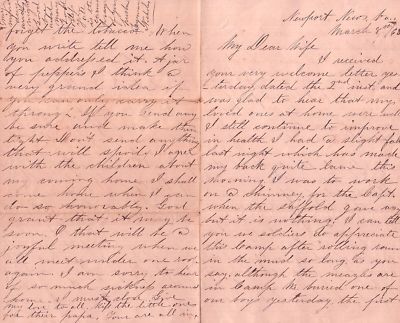 Newport News, Va.
March 8th /63
My Dear Wife
I received
your very welcome letter yes-
-terday dated the 2nd inst. and
was glad to hear that my
loved ones at home were well
I still continue to improve
in health I had a slight fall
last night which has made
my back quite lame this
morning I was to work
on a chimney for the Capt.
when the scaffold gave way
but it is nothing. I can tell
you we soldiers do appreciate
this Camp after rolling round
in the mud so long as you
say, although the measles are
in Camp We buried one of
our boys yesterday the first
forget the tobacco. When
you write tell me how
you addressed it. A jar
of peppers I think a
very grand idea if
you can only carry it
strong. If you send any
be sure and make them
tight Don't send anything
that will spoil. I agree
with the children about
my coming home I shall
come home when I can
do so honorably. God
grant that it may be
soon, I that will be a
joyful meeting when we
all meet under one roof
again. I am sorry to hear
of so much sickness around
home. I must close Give
my love to all, kiss the little one
for their papa, You are all in